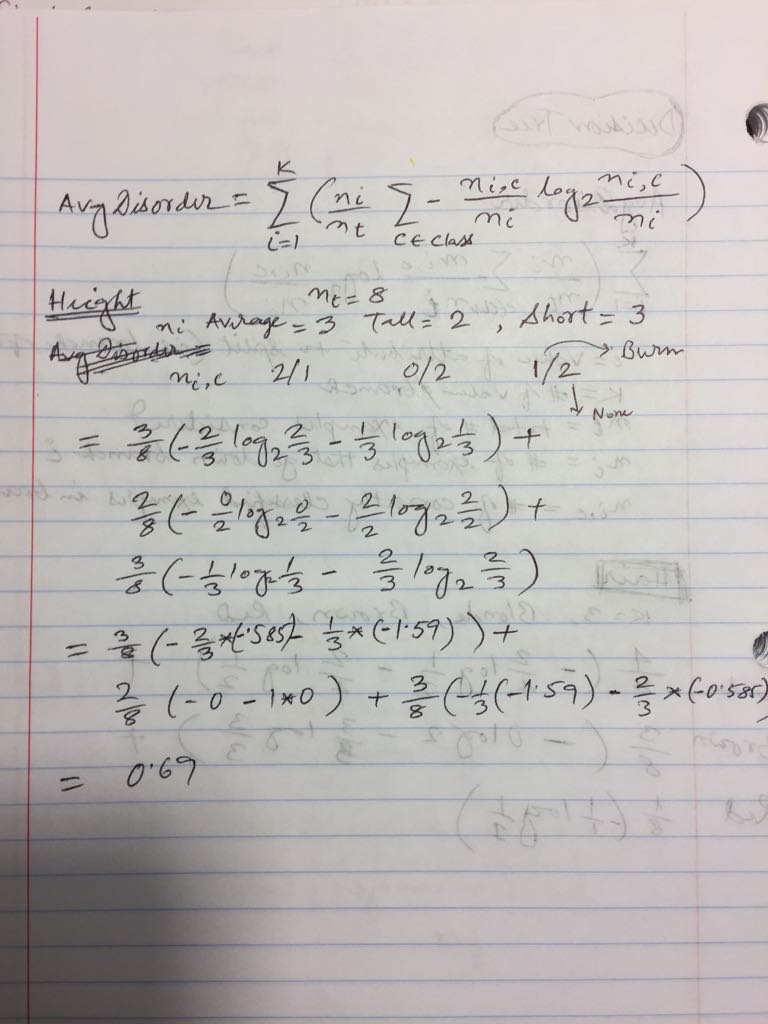 Avg Disorder = K∑i=1 ( ni/nt ∑c∈class - ni,c/ni log2 ni,c/ni )
Height nt = 8
ni Average = 3 Tall = 2 , Short = 3
Avg Disorder =
ni,c 2/1 0/2 1/2 → Burn
↓ None
= 3/8 (- 2/3 log2 2/3 - 1/3 log2 1/3) +
2/8 (- 0/2 log2 0/2 - 2/2 log2 2/2) +
3/8 (- 1/3 log2 1/3 - 2/3 log2 2/3)
= 3/8 (- 2/3 * (-.585) - 1/3 * (-1.59)) +
2/8 (-0 - 1*0) + 3/8 (- 1/3 (-1.59) - 2/3 * (-0.585)
= 0.69